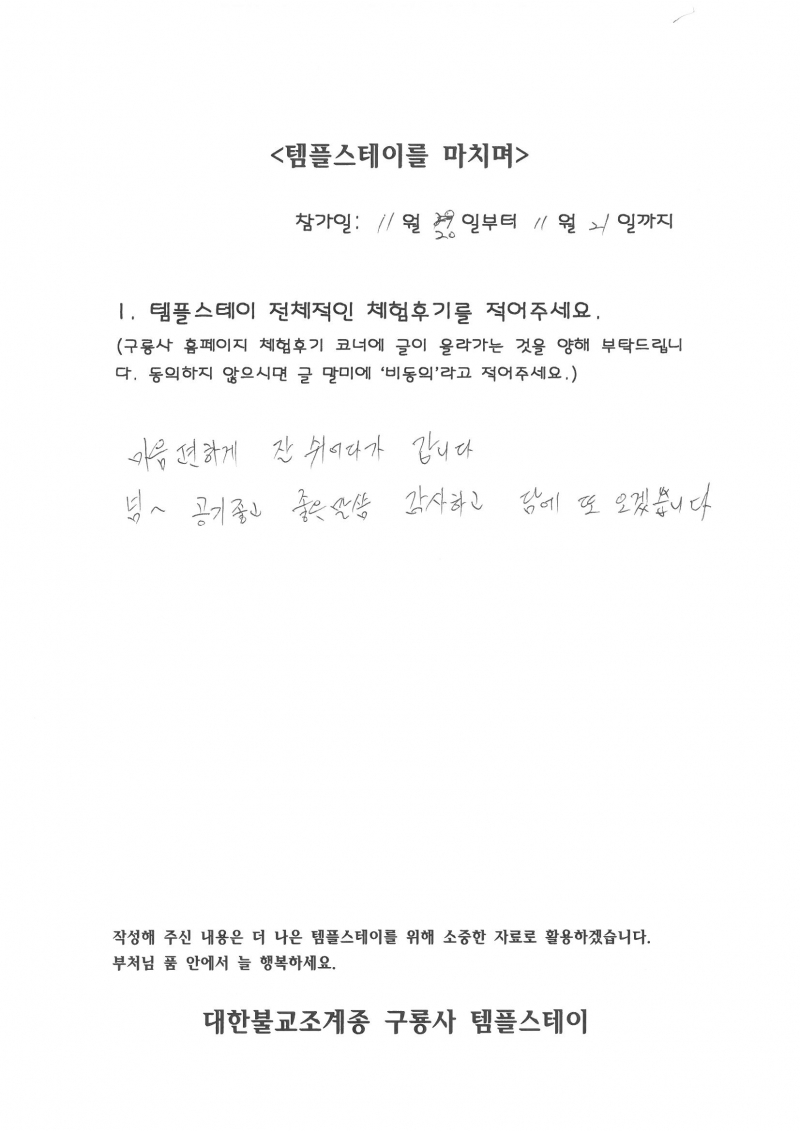 <템플스테이를 마치며>
참가일: 11월 20일부터 11월 21일까지
1. 템플스테이 전체적인 체험후기를 적어주세요.
(구룡사 홈페이지 체험후기 코너에 글이 올라가는 것을 양해 부탁드립니
다. 동의하지 않으시면 글 말미에 ‘비동의’라고 적어주세요.)
마음 편하게 잘 쉬어다가 갑니다
넘~ 공기좋고 좋은말씀 감사하고 담에 또 오겠습니다
작성해 주신 내용은 더 나은 템플스테이를 위해 소중한 자료로 활용하겠습니다.
부처님 품 안에서 늘 행복하세요.
대한불교조계종 구룡사 템플스테이